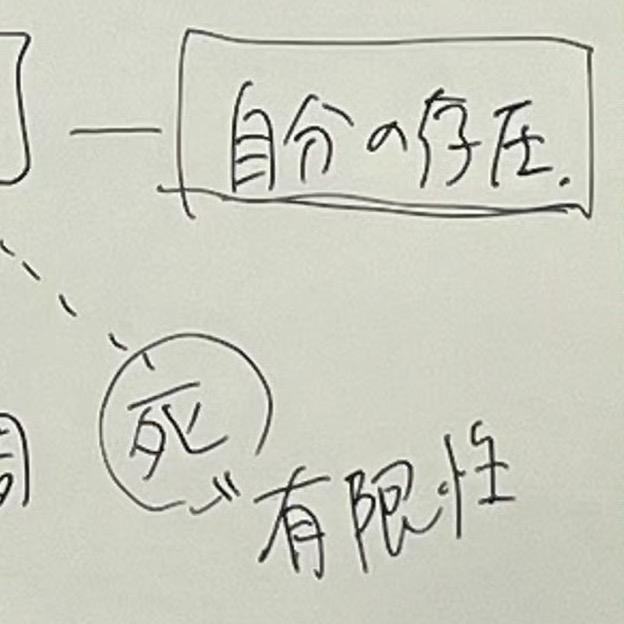 自分の存在.
死
有限性